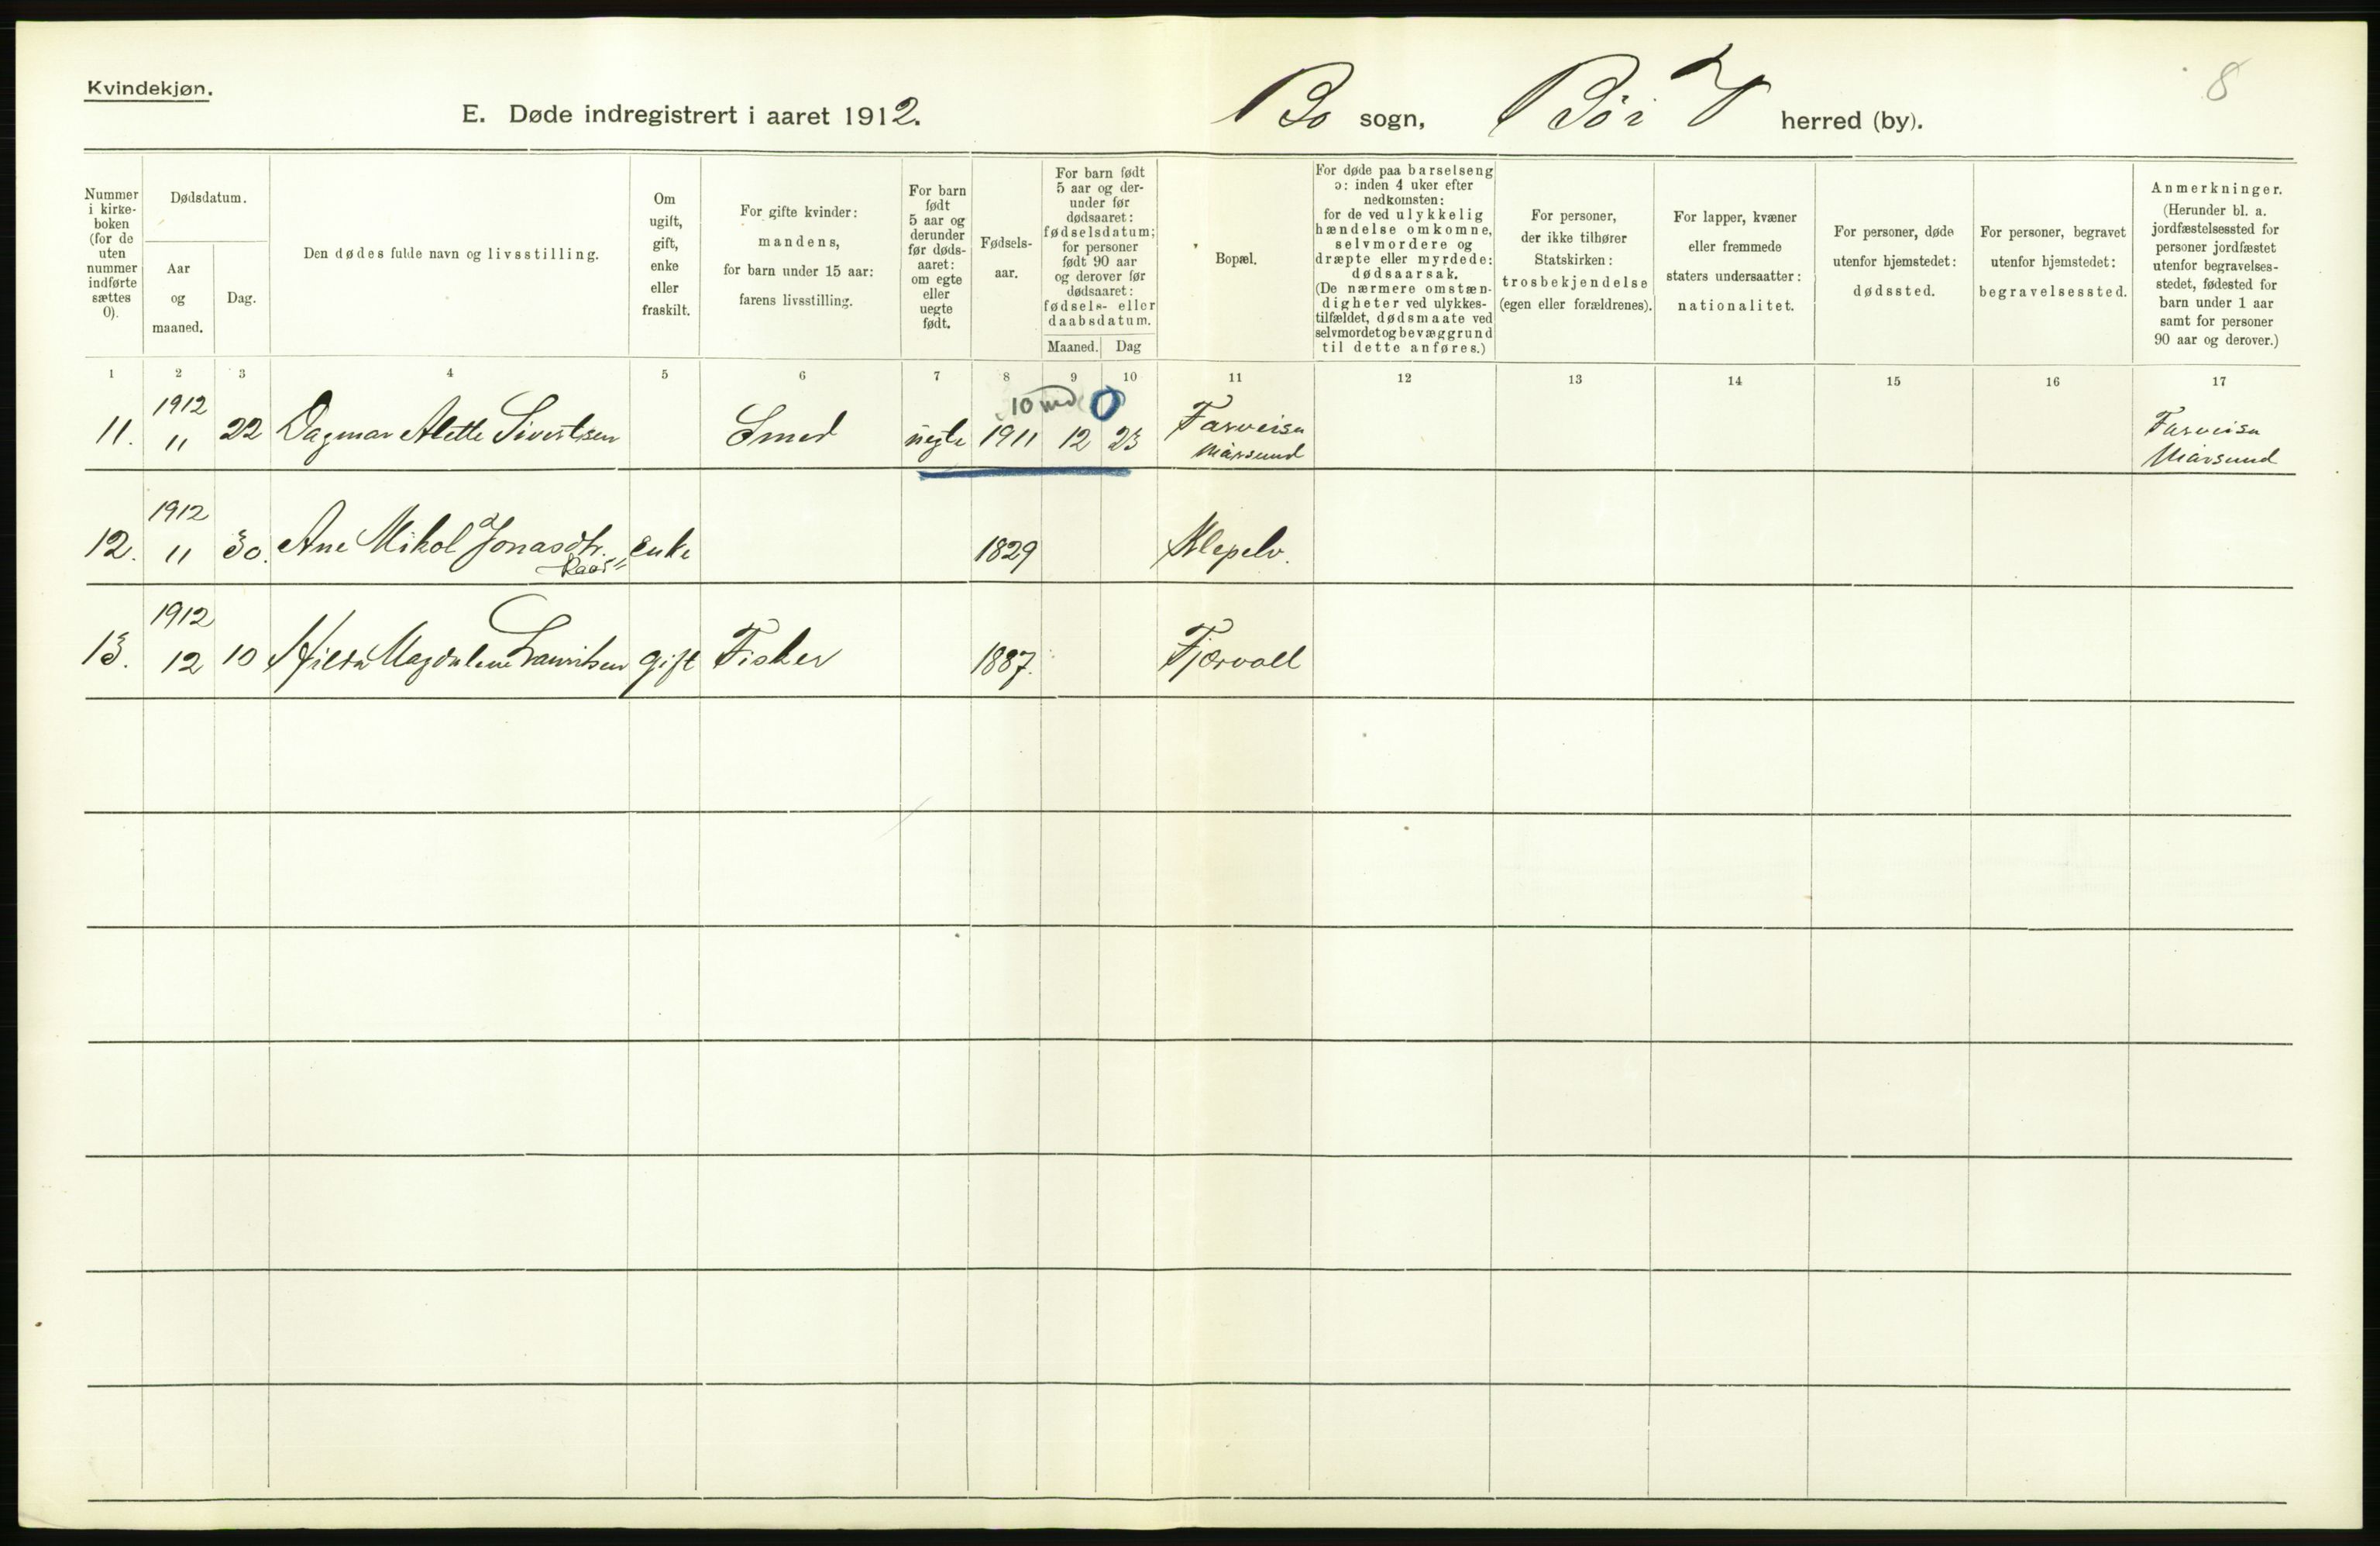 Kvindekjøn.
8
E. Døde indregistrert i aaret 1912.
Bø sogn, Bø i V herred (by).
Nummer i kirke-boken (for de uten nummer indførte sættes 0).
Dødsdatum.
Aar og maaned.
Dag.
Den dødes fulde navn og livsstilling.
Om ugift, gift, enke eller fraskilt.
For gifte kvinder: mandens, for barn under 15 aar: farens livsstilling.
For barn født 5 aar og derunder før døds-aaret: om egte eller uegte født.
Fødsels-aar.
For barn født 5 aar og der-under før dødsaaret: fødselsdatum; for personer født 90 aar og derover før dødsaaret: fødsels- eller daabsdatum.
Maaned. Dag
Bopæl.
For døde paa barselseng ɔ: inden 4 uker efter nedkomsten: for de ved ulykkelig hændelse omkomne, selvmordere og dræpte eller myrdede: dødsaarsak. (De nærmere omstæn-digheter ved ulykkes-tilfældet, dødsmaate ved selvmordet og bevæggrund til dette anføres.)
For personer, der ikke tilhører Statskirken: trosbekjendelse (egen eller forældrenes).
For lapper, kvæner eller fremmede staters undersaatter: nationalitet.
For personer, døde utenfor hjemstedet: dødssted.
For personer, begravet utenfor hjemstedet: begravelsessted.
Anmerkninger. (Herunder bl. a. jordfæstelsessted for personer jordfæstet utenfor begravelses-stedet, fødested for barn under 1 aar samt for personer 90 aar og derover.)
1 2 3 4 5 6 7 8 9 10 11 12 13 14 15 16 17
10 md 0
11. 1912 11 22 Dagmar Alette Sivertsen Smed uegte 1911 12 23
12. 1912 11 30. Ane Mikol Jonasdtr. Enke 1829 Klepelv.
13. 1912 12 10 Hilda Magdalene Lauritsen gift Fisker 1887. Fjærvoll